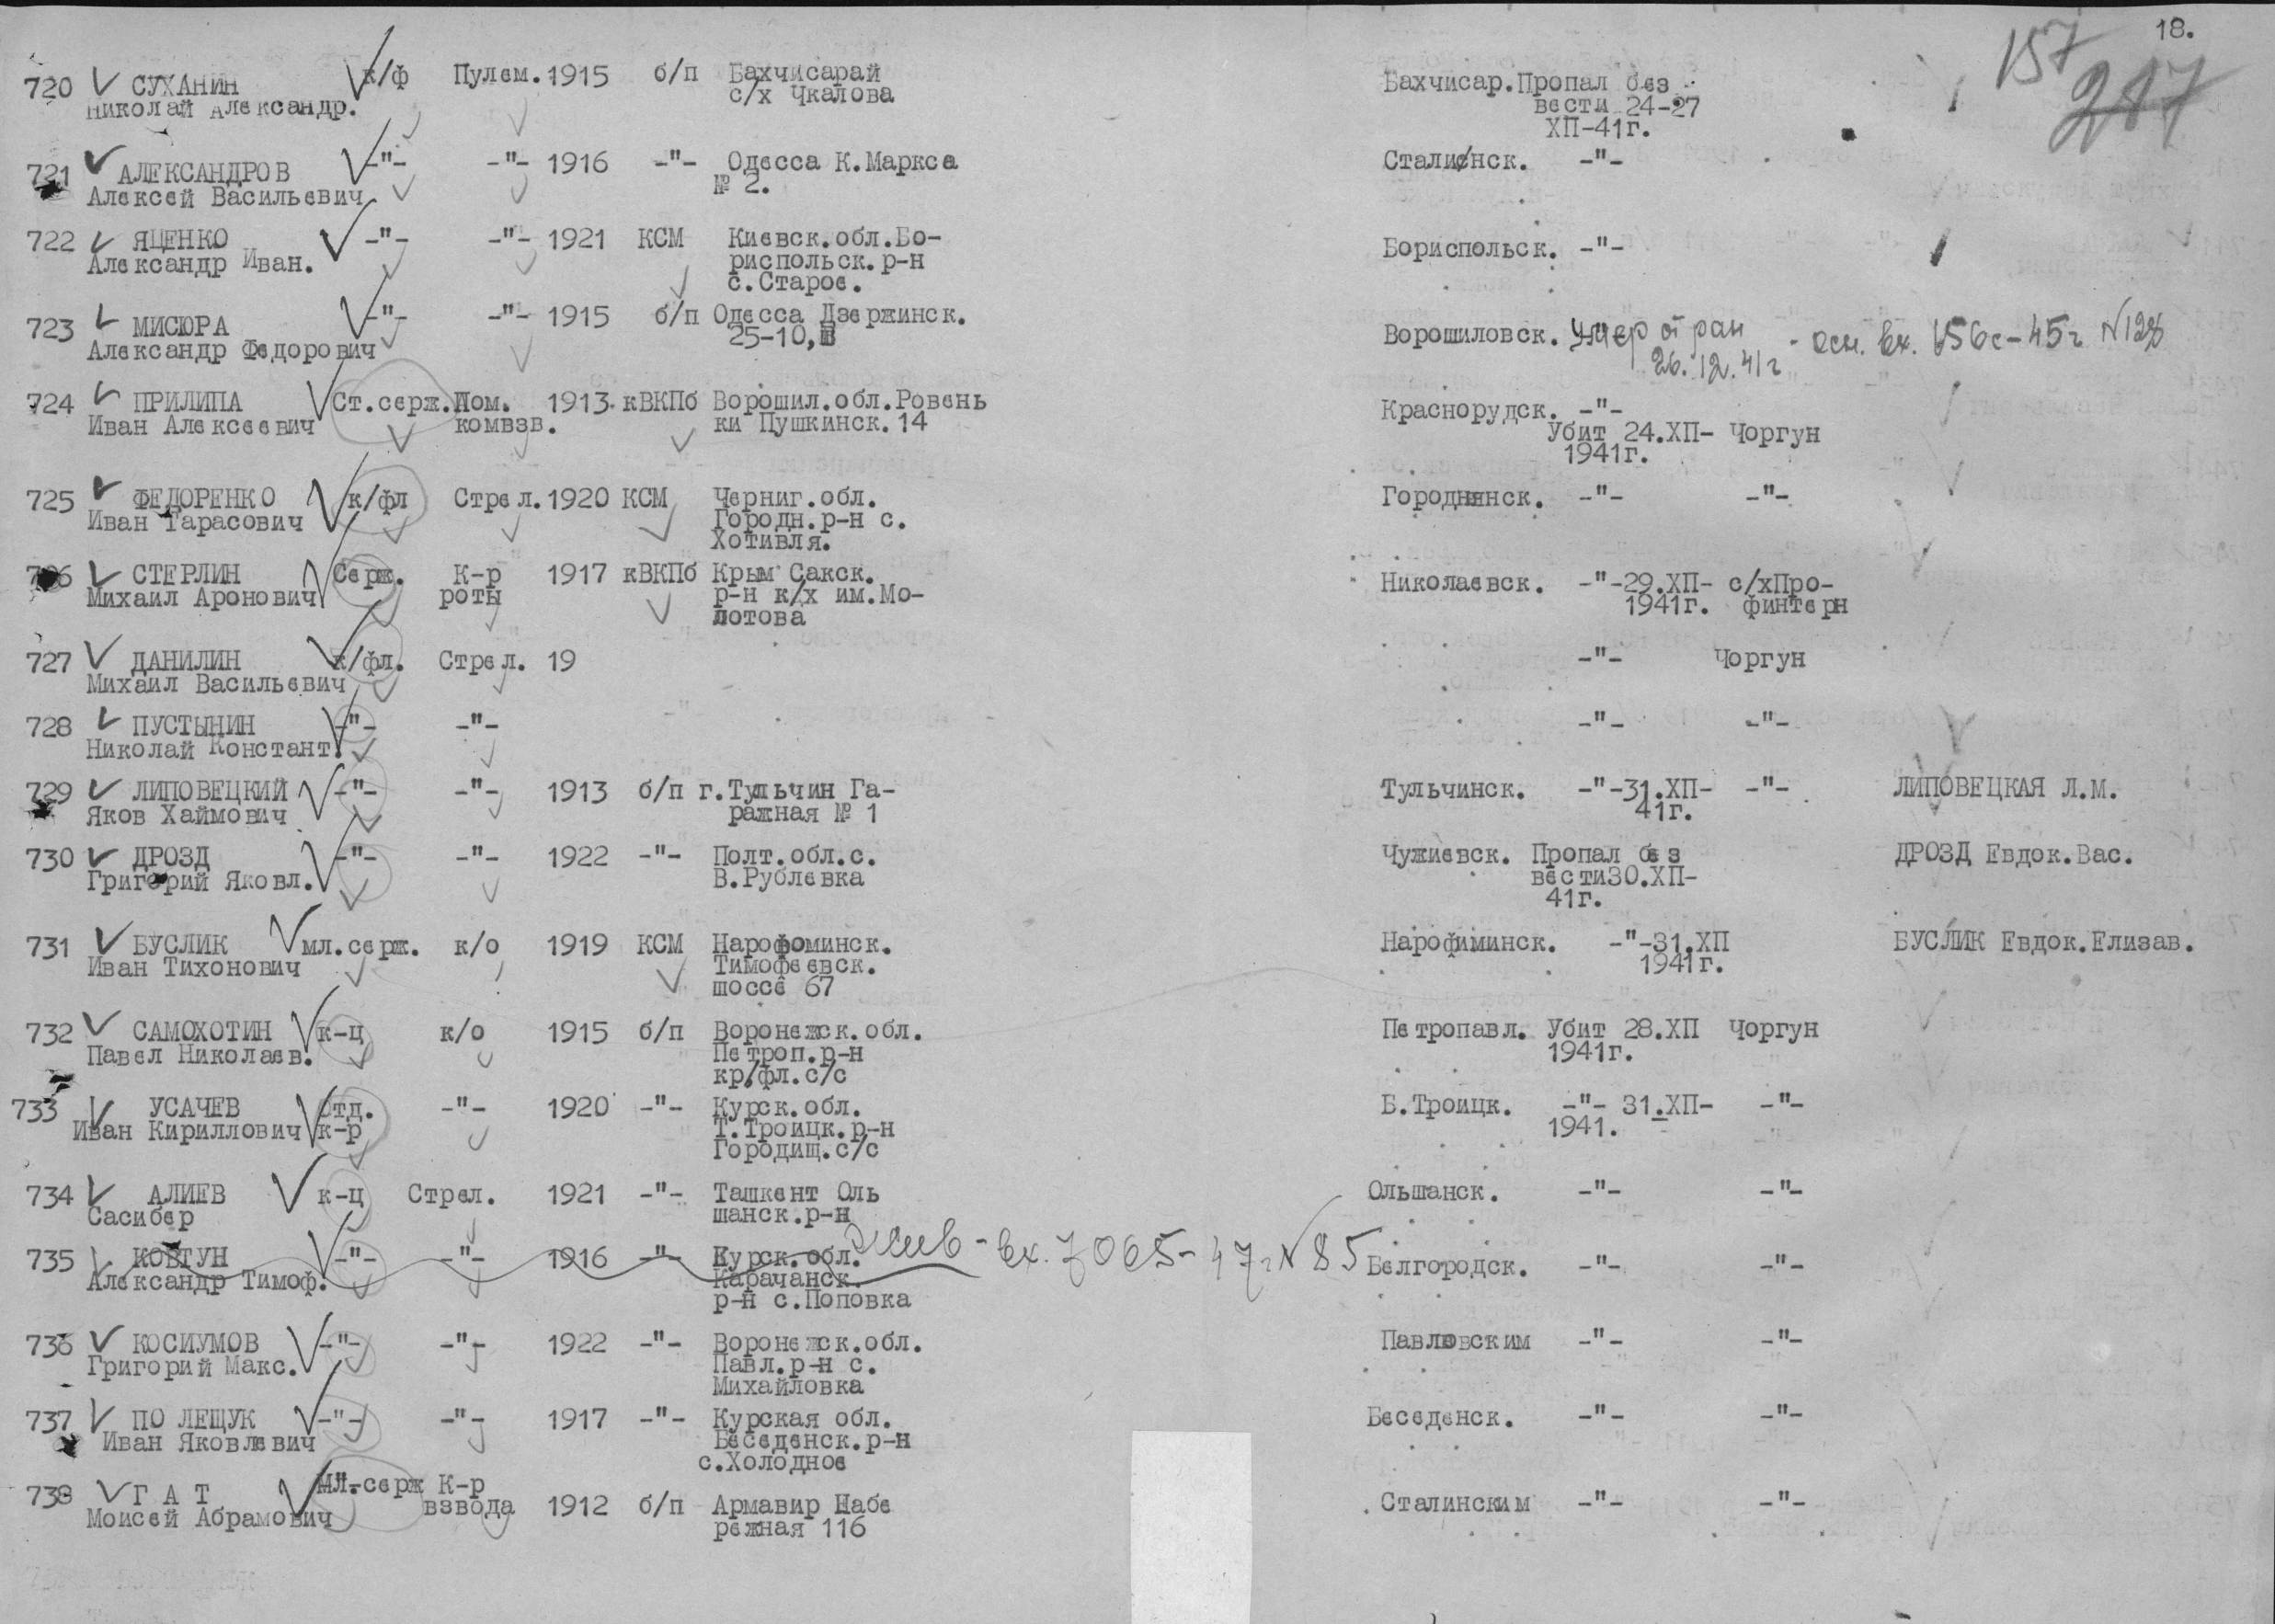 18.
157
217
720 СУХАНИН к/ф Пулем. 1915 б/п Бахчисарай Бахчисар. Пропал без
Николай Александр. с/х Чкалова вести 24-27
ХП-41г.
721 АЛЕКСАНДРОВ -"- -"- 1916 -"- Одесса К.Маркса Сталинск. -"-
Алексей Васильевич № 2.
722 ЯЦЕНКО -"- -"- 1921 КСМ Киевск.обл.Бо- Бориспольск. -"-
Александр Иван. риспольск.р-н
с.Старое.
723 МИСЮРА -"- -"- 1915 б/п Одесса Дзержинск. Ворошиловск. умер от ран - осн. вх. 1556с-45г N128
Александр Федорович 25-10, 26.12.41г
724 ПРИЛИПА Ст.серж. Пом. 1913 кВКПб Ворошил.обл.Ровень Краснорудск. -"-
Иван Алексеевич комвзв. ки Пушкинск.14 Убит 24.ХП- Чоргун
1941г.
725 ФЕДОРЕНКО к/фл Стрел. 1920 КСМ Черниг.обл. Городнянск. -"- -"-
Иван Тарасович Городн.р-н с.
Хотивля.
726 СТЕРЛИН Серж. К-р 1917 кВКПб Крым Сакск. Николаевск. -"-29.ХП- с/хПро-
Михаил Аронович роты р-н к/х им.Мо- 1941г. финтерн
лотова
727 ДАНИЛИН к/фл. Стрел. 19 -"- Чоргун
Михаил Васильевич
728 ПУСТЫНИН -"- -"- -"- -"-
Николай Констант.
729 ЛИПОВЕЦКИЙ -"- -"- 1913 б/п г.Тульчин Га- Тульчинск. -"-31.ХП- -"- ЛИПОВЕЦКАЯ Л.М.
Яков Хаймович ражная № 1 41г.
730 ДРОЗД -"- -"- 1922 -"- Полт.обл.с. Чужиевск. Пропал без ДРОЗД Евдок.Вас.
Григорий Яковл. В.Рублевка вести30.ХП-
41г.
731 БУСЛИК мл.серж. к/о 1919 КСМ Нарофоминск. Нарофиминск. -"-31.ХП БУСЛИК Евдок.Елизав.
Иван Тихонович Тимофеевск. 1941г.
шоссе 67
732 САМОХОТИН к-ц к/о 1915 б/п Воронежск.обл. Петропавл. Убит 28.ХП Чоргун
Павел Николаев. Петроп.р-н 1941г.
кр/фл.с/с
733 УСАЧЕВ Отд. -"- 1920 -"- Курск.обл. Б.Троицк. -"- 31.ХП- -"-
Иван Кириллович к-р Т.Троицк.р-н 1941.
Городищ.с/с
734 АЛИЕВ к-ц Стрел. 1921 -"- Ташкент Оль Ольшанск. -"- -"-
Сасибер шанск.р-н
735 КОВТУН -"- -"- 1916 -"- Курск.обл. жив - вх. 7065-47г N85 Белгородск. -"- -"-
Александр Тимоф. Карачанск.
р-н с.Поповка
736 КОСИУМОВ -"- -"- 1922 -"- Воронежск.обл. Павловским -"- -"-
Григорий Макс. Павл.р-н с.
Михайловка
737 ПО ЛЕЩУК -"- -"- 1917 -"- Курская обл. Беседенск. -"- -"-
Иван Яковлевич Беседенск.р-н
с.Холодное
738 Г А Т Мл.серж К-р
Моисей Абрамович взвода 1912 б/п Армавир Набе Сталинским -"- -"-
режная 116